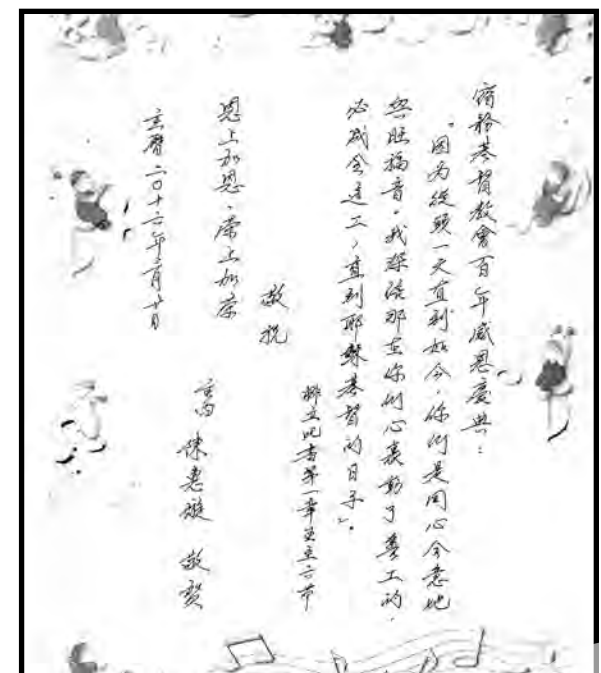 宿務基督教會百年感恩慶典：
“因为從頭一天直到如今，你们是同心合意地
興旺福音。我深信那在你们心裏動了善工的，
必成全這工，直到耶穌基督的日子”。
腓立比書第一章五至六节
敬祝
恩上加恩，荣上加荣
陳惠璇 敬賀
主曆二〇十六年三月廿日